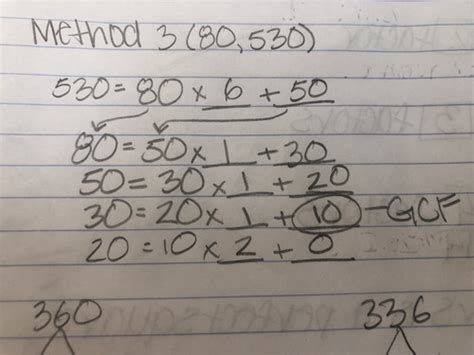 Method 3 (80,530)
530 = 80 x 6 + 50
80 = 50 x 1 + 30
50 = 30 x 1 + 20
30 = 20 x 1 + 10 - GCF
20 = 10 x 2 + 0
360 336